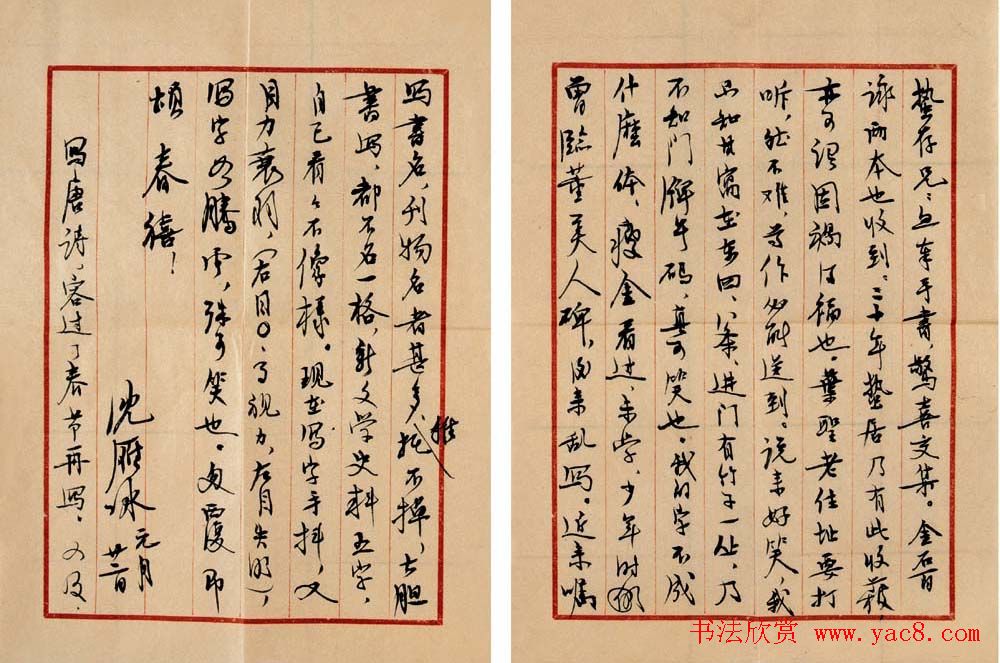 蛰存兄：立奉手书，惊喜交集。金石百
咏两本也收到：二十年蛰居乃有此收获，
亦可谓因祸得福也。叶圣老住址要打
听，然不难，尊作必能送到。说来好笑，我
只知其寓在东四、八条、进门有竹子一丛，乃
不知门牌号码，真可笑也。我的字不成
什么体，瘦金看过未学，少年时
曾临董美人碑，后来乱写。近来嘱
写书名，刊物名者甚多，推托不掉，大胆
书写，都不名一格，新文学史料五字，
自己看看不像样。现在写字手抖，又
目力衰弱，（右目0.3视力，左目失明），
写字如腾云，殊可笑也。匆覆即
颂
春禧！
沈雁冰 元月
廿一日
写唐诗，容过了春节再写。又及.
书法欣赏 www.yac8.com